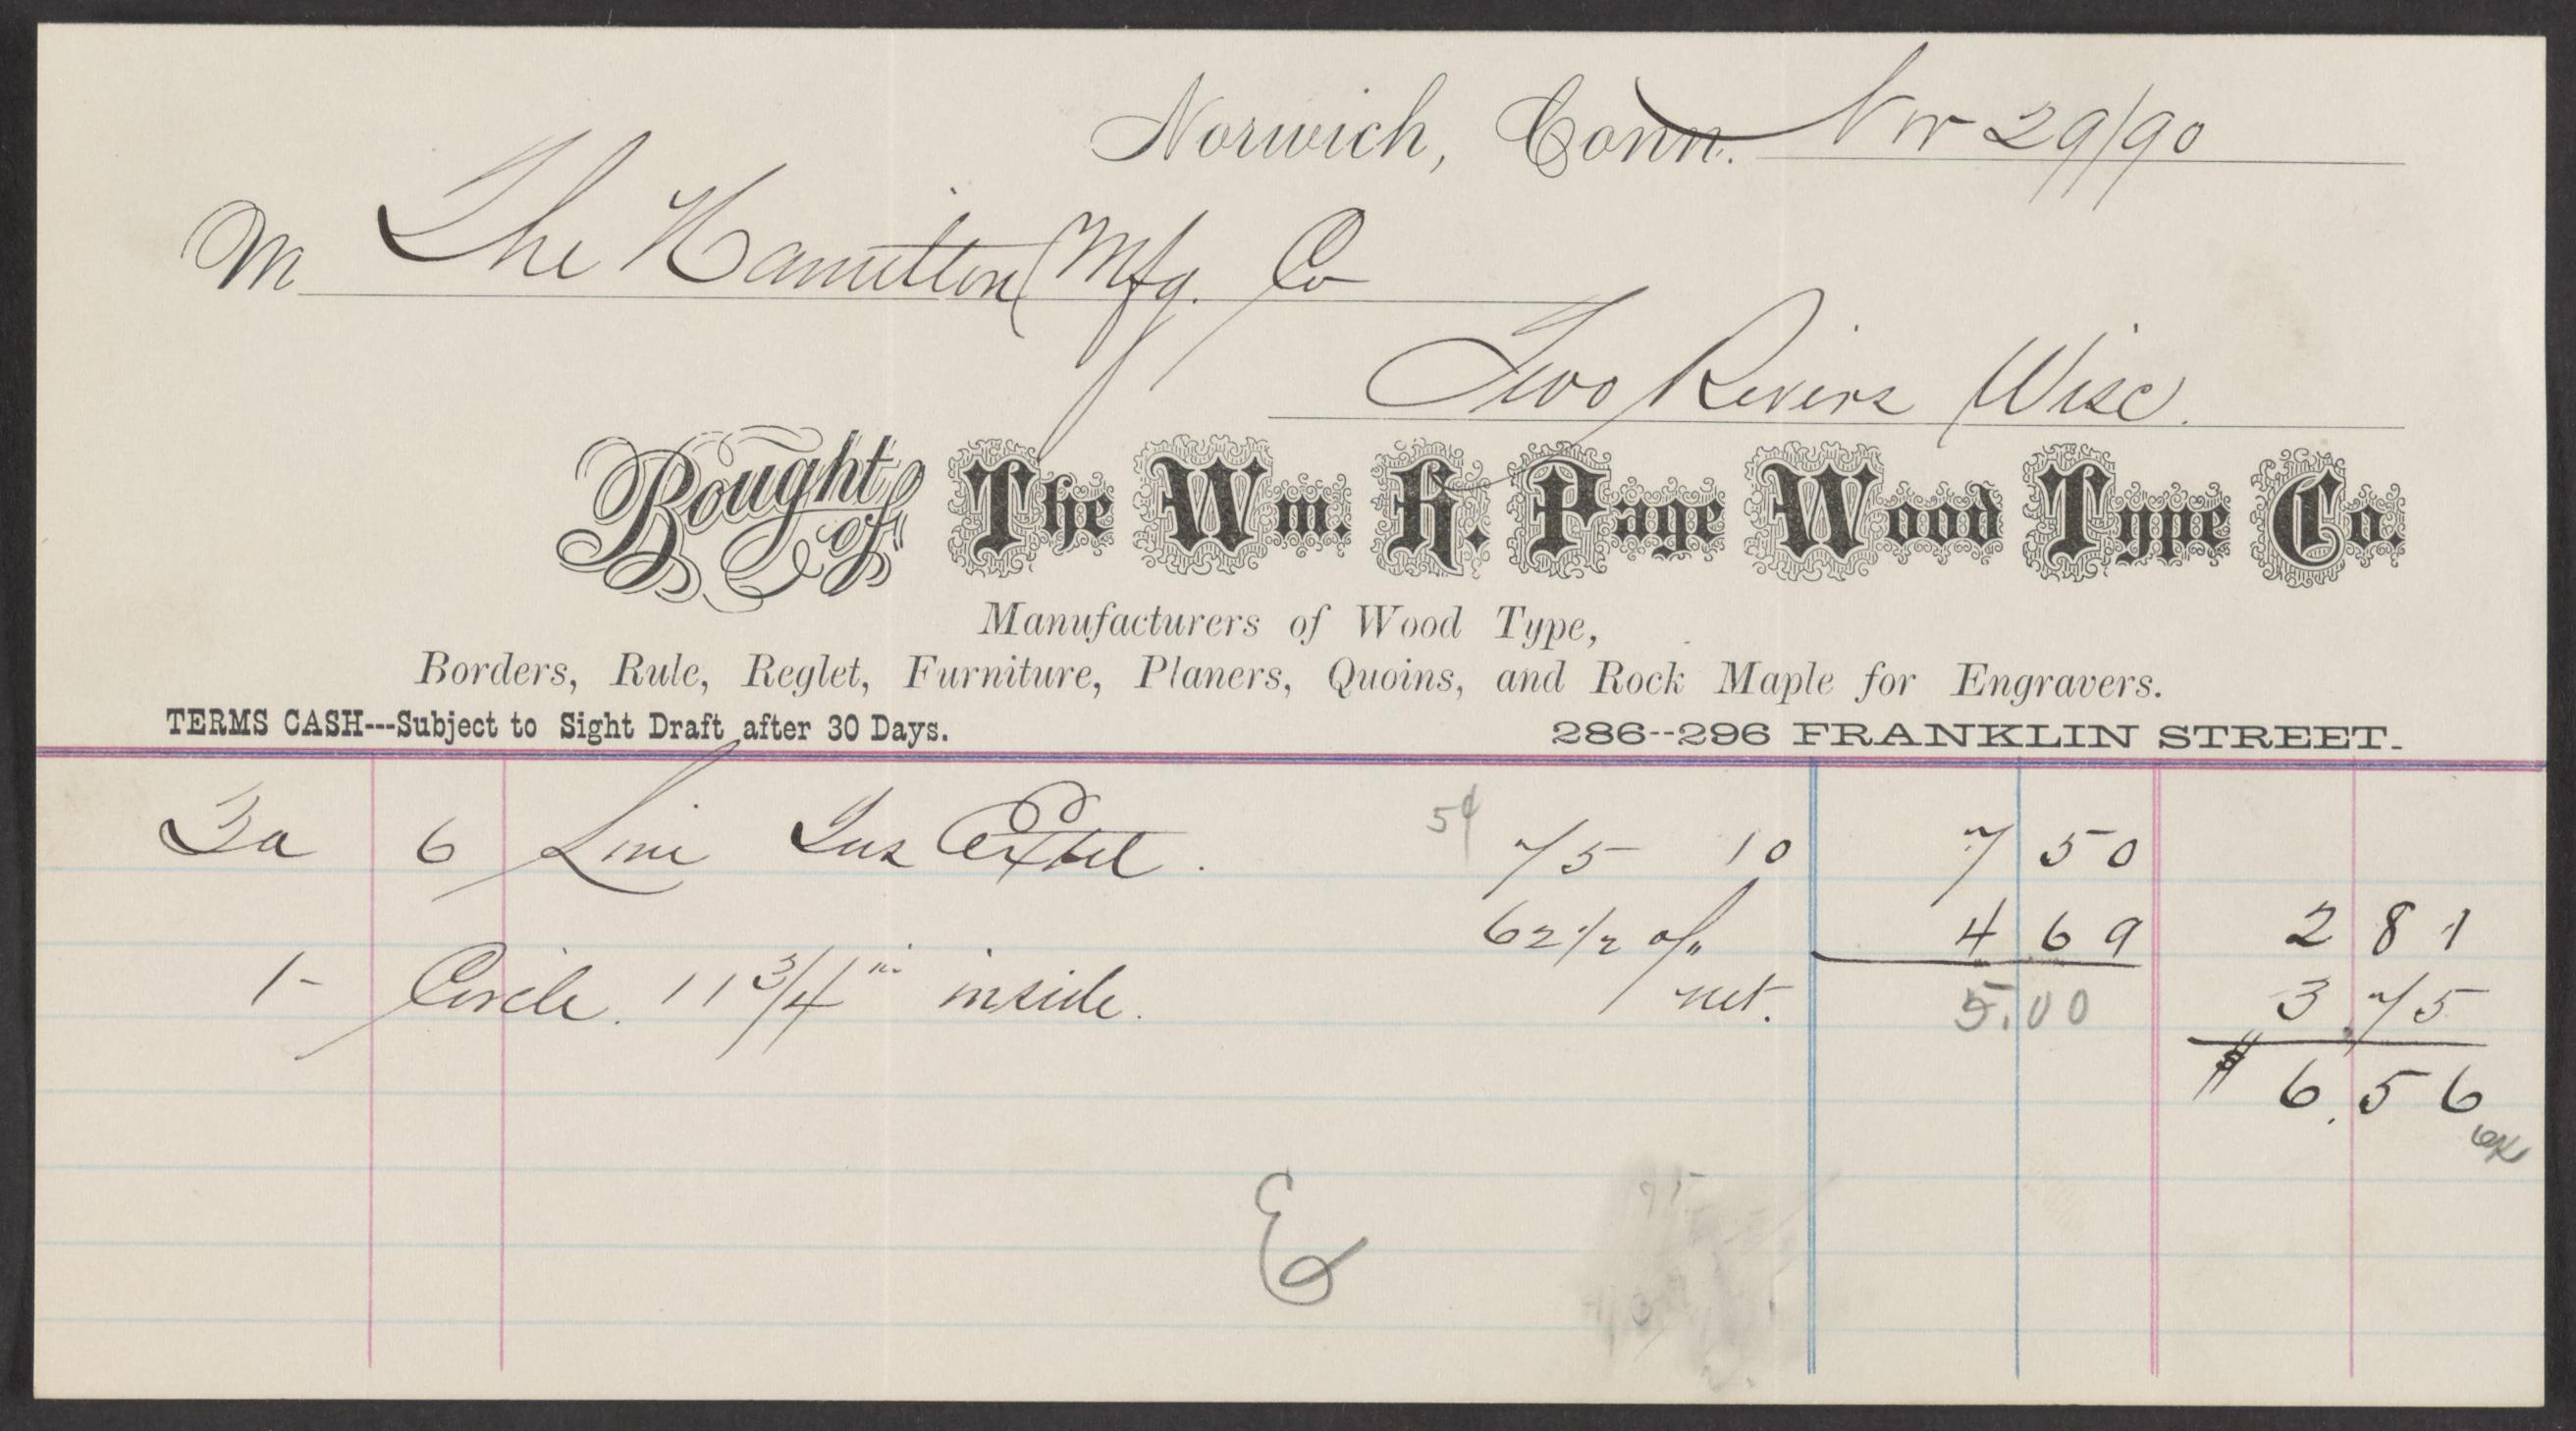 Norwich, Conn. Nov 29/90
M The Hamilton Mfg. Co
Two Rivers Wisc.
Bought of The Wm. H. Page Wood Type Co.
Manufacturers of Wood Type,
Borders, Rule, Reglet, Furniture, Planers, Quoins, and Rock Maple for Engravers.
TERMS CASH---Subject to Sight Draft after 30 Days. 286--296 FRANKLIN STREET.
3a 6 Line 5¢ 75 10 7 50
62 1/2 4 69 2 81
1- Circle. 11 3/4 in inside. net. 5.00 3.75
$ 6.56
OK